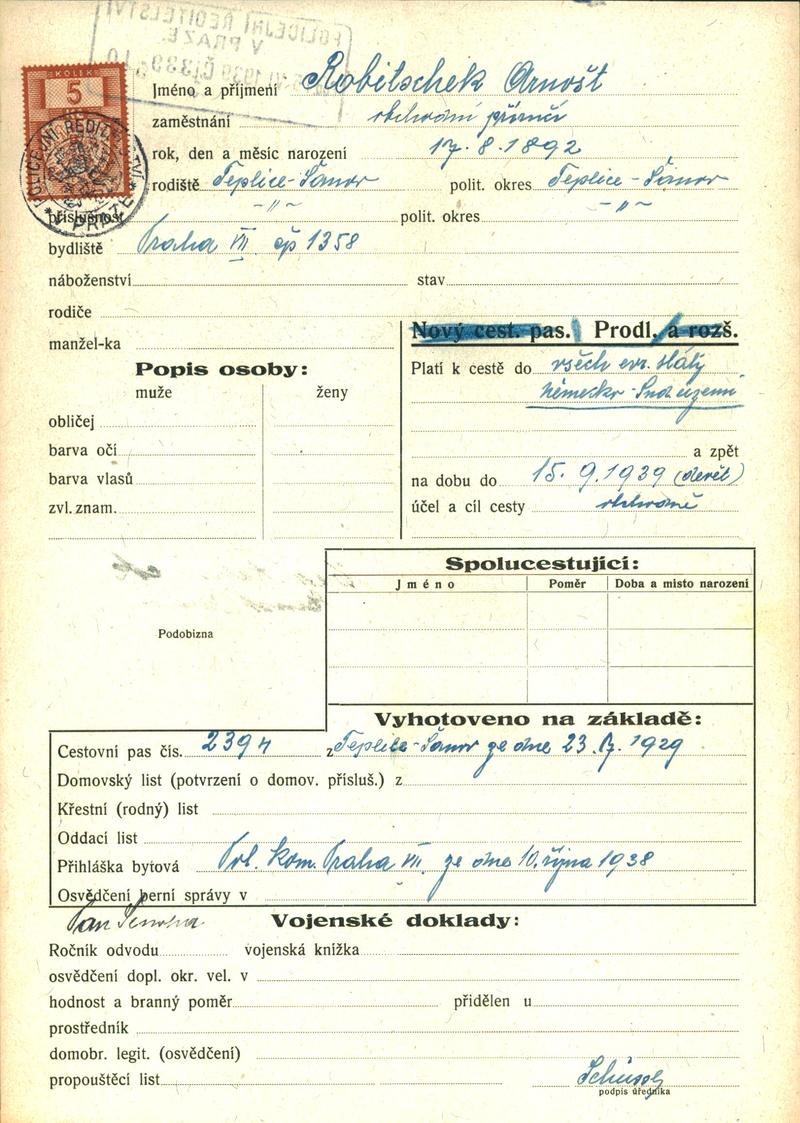 POLICEJNÍ ŘEDITELSTVÍ
V PRAZE.
KOLEK
5
V PRAZE
Jméno a příjmení Robitschek Arnošt
zaměstnání obchodní příručí
rok, den a měsíc narození 17.8.1892
rodiště Teplice-Šanov polit. okres Teplice-Šanov
příslušnost -"- polit. okres -"-
bydliště Praha VII čp 1358
náboženství stav
rodiče
manžel-ka
Nový cest. pas. Prodl. a rozš.
Popis osoby:
muže ženy
obličej
barva očí
barva vlasů
zvl. znam.
Platí k cestě do všech evr. státy
Německo-Sud. území
a zpět
na dobu do 15.9.1939 (devět)
účel a cíl cesty obchodně
Spolucestující:
Jméno Poměr Doba a místo narození
Podobizna
Vyhotoveno na základě:
Cestovní pas čís. 2394 z Teplice-Šanov ze dne 23. 1929
Domovský list (potvrzení o domov. přísluš.) z
Křestní (rodný) list
Oddací list
Přihláška bytová Pol. kom. Praha VII. ze dne 10. října 1938
Osvědčení berní správy v
Pan
Vojenské doklady:
Ročník odvodu vojenská knížka
osvědčení dopl. okr. vel. v
hodnost a branný poměr přidělen u
prostředník
domobr. legit. (osvědčení)
propouštěcí list
podpis úředníka